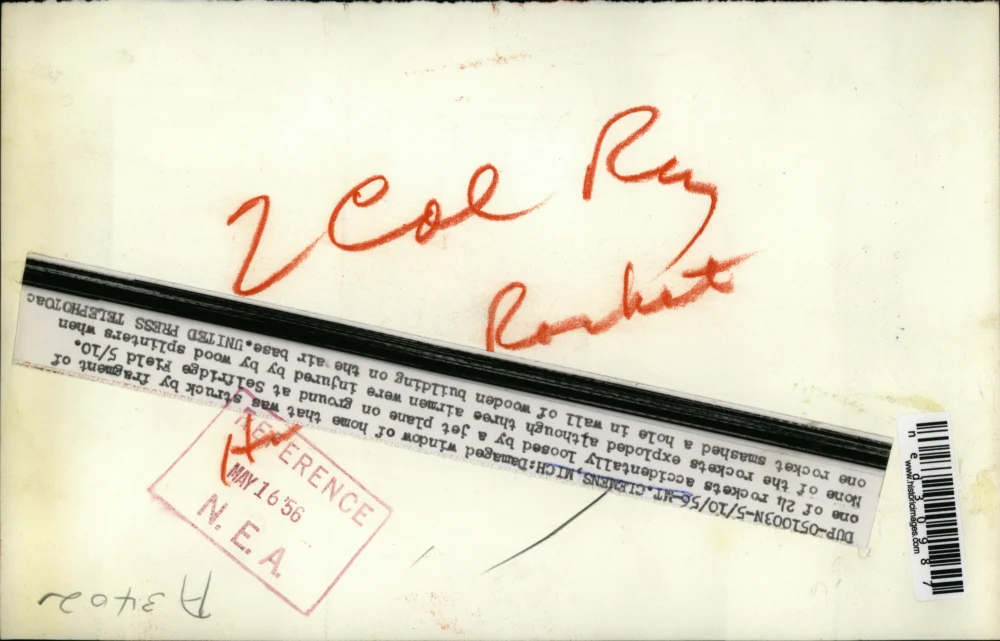 2 Col Ray
Rocket
DUP-051003N-5/10/56-MT.CLEMENS,MICH:Damaged window of home that was struck by fragment of
one of 24 rockets accidentally loosed by a jet plane on ground at Selfridge Field 5/10.
None of the rockets exploded although three airmen were injured by wood splinters when
one rocket smashed a hole in wall of wooden building on the air base.UNITED PRESS TELEPHOTOac
REFERENCE
MAY 16 '56
N.E.A.
A3402
www.historicimages.com
ned30987